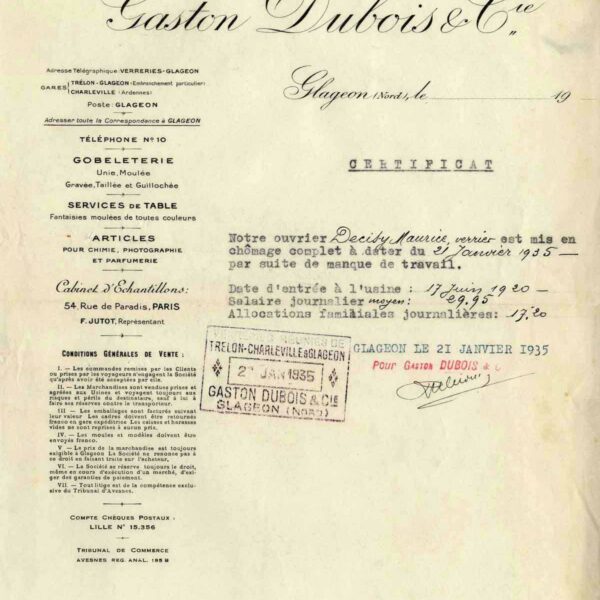 Gaston Dubois & Cie
Adresse Télégraphique VERRERIES-GLAGEON
GARES TRÉLON-GLAGEON (Embranchement particulier)
CHARLEVILLE (Ardennes)
Poste: GLAGEON
Adresser toute la Correspondance à GLAGEON
TÉLÉPHONE N° 10
GOBELETERIE
Unie, Moulée
Gravée, Taillée et Guillochée
SERVICES DE TABLE
Fantaisies moulées de toutes couleurs
ARTICLES
POUR CHIMIE, PHOTOGRAPHIE
ET PARFUMERIE
Cabinet d'Échantillons:
54, Rue de Paradis, PARIS
F. JUTOT, Représentant
CONDITIONS GÉNÉRALES DE VENTE :
I. — Les commandes remises par les Clients
ou prises par les voyageurs n'engagent la Société
qu'après avoir été acceptées par elle.
II. — Les Marchandises sont vendues prises et
agréées aux Usines et voyagent toujours aux
risques et périls du destinataire, sauf à lui à
faire ses réserves contre le transporteur.
III — Les emballages sont facturés suivant
leur valeur Les cadres doivent être retournés
franco en gare expéditrice Les caisses et harasses
vides ne sont reprises à aucun prix.
IV. — Les moules et modèles doivent être
envoyés franco.
V — Le prix de la marchandise est toujours
exigible à Glageon La Société ne renonce pas à
ce droit en faisant traite sur l'acheteur.
VI. — La Société se réserve toujours le droit,
même en cours d'exécution d'un marché, d'exi-
ger des garanties de paiement.
VII — Tout litige est de la compétence exclu-
sive du Tribunal d'Avesnes.
COMPTE CHÈQUES POSTAUX :
LILLE N° 15.356
TRIBUNAL DE COMMERCE
AVESNES REG. ANAL. 195 M
Glageon (Nord), le 19
CERTIFICAT
Notre ouvrier Deciby Maurice, verrier est mis en
chômage complet à dater du 21 Janvier 1935 —
par suite de manque de travail.
Date d'entrée à l'usine : 17 Juin 1920 —
Salaire journalier moyen: 29.95
Allocations familiales journalières: 17.20
GLAGEON LE 21 JANVIER 1935
POUR GASTON DUBOIS & C
RÉUNIES DE
TRÉLON-CHARLEVILLE & GLAGEON
JAN 1935
GASTON DUBOIS & CIE
GLAGEON (NORD)